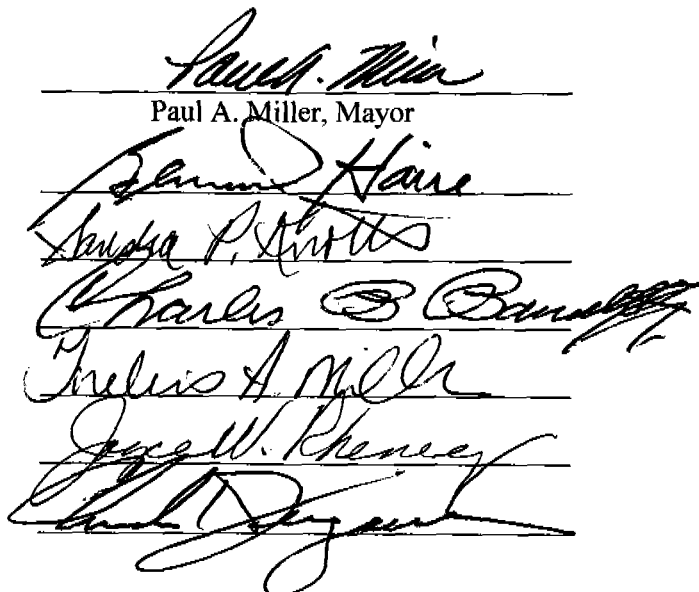 Paul A. Miller
Paul A. Miller, Mayor
Haire
Sandra P. Knotts
Charles B Barnett
A Miller
Joyce W. Rheney